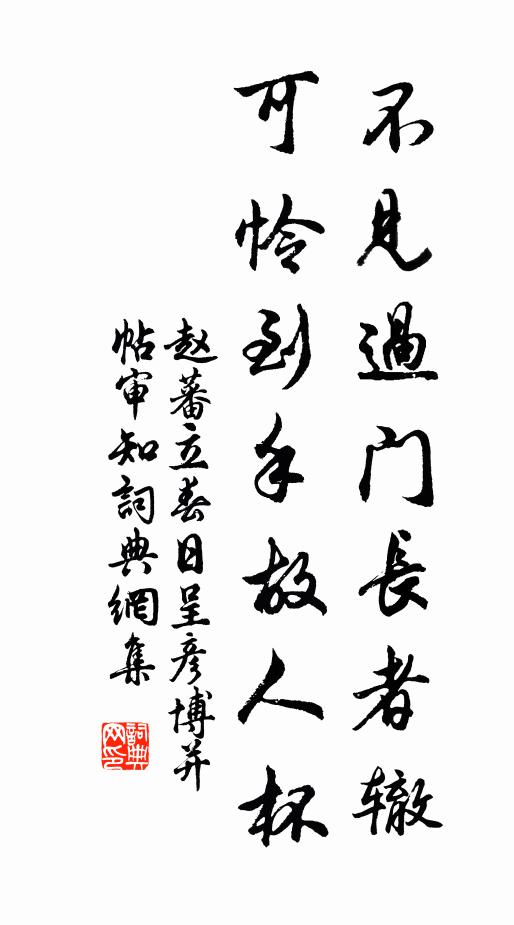 不見過門長者辙
可怜到手故人杯
赵蕃立春日呈彦博并
帖审知詞典網集
詞典网印